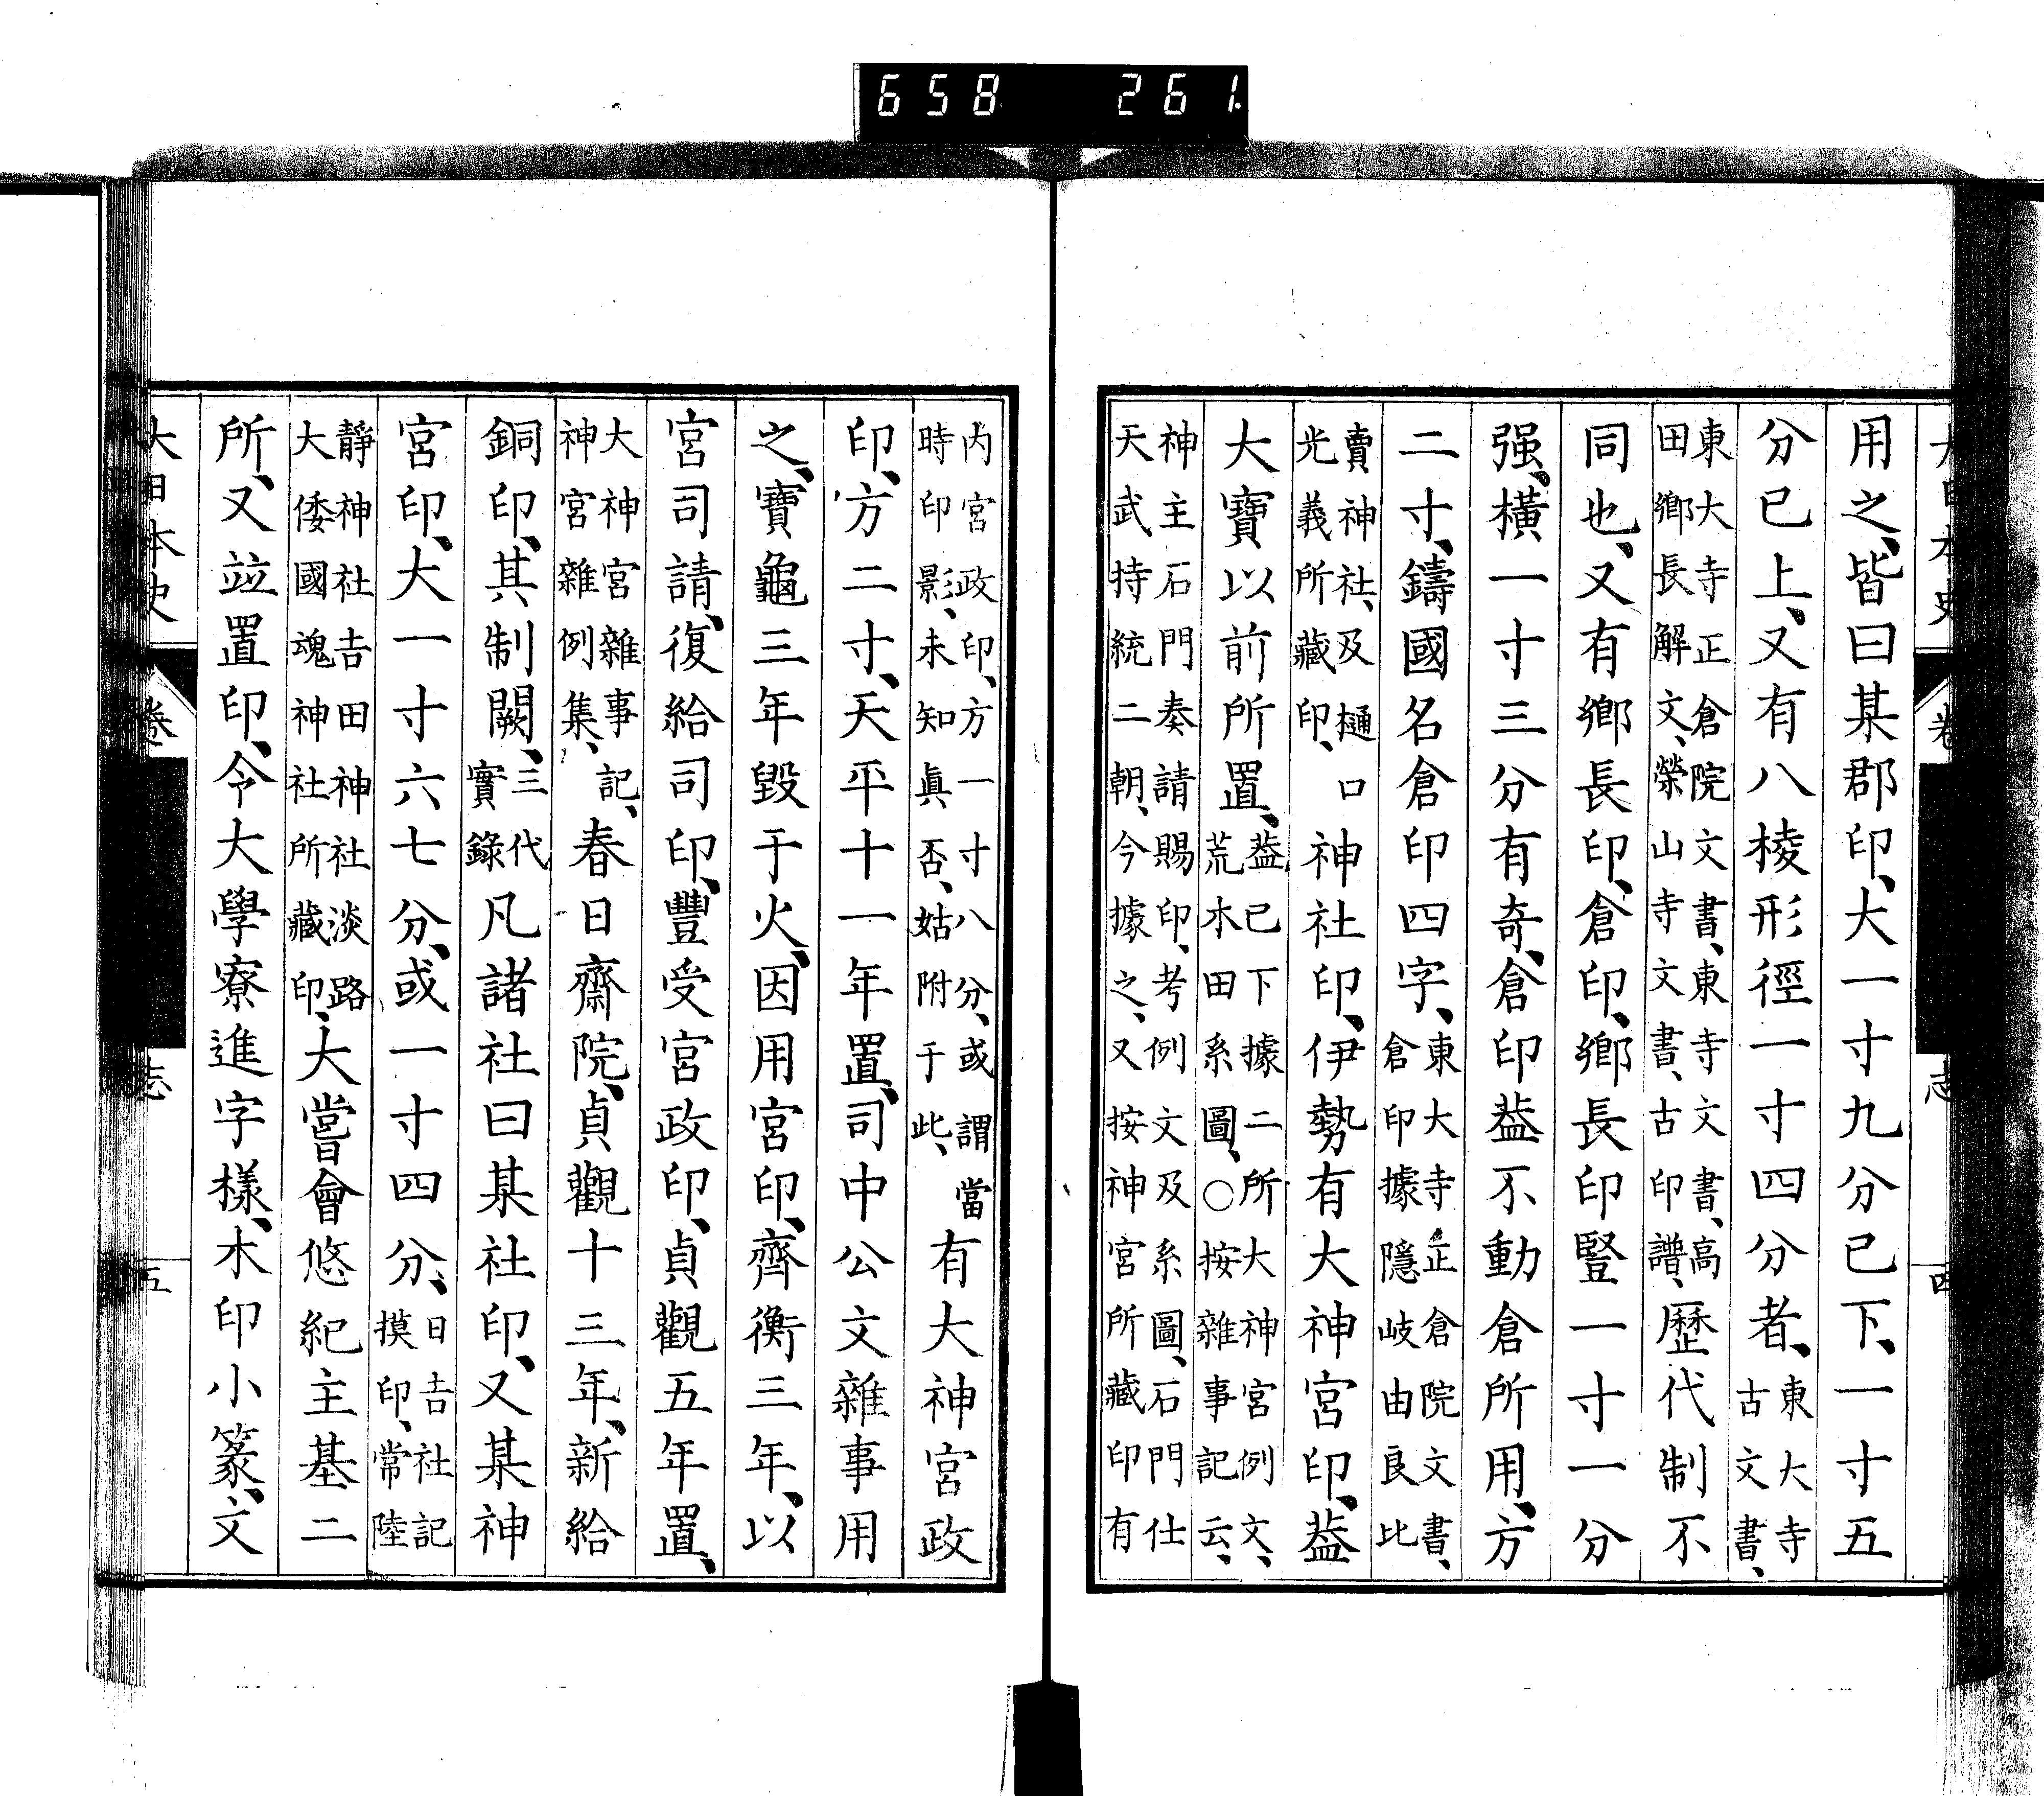 658 261
用之、皆曰某郡印、大一寸九分已下、一寸五
分已上、又有八棱形徑一寸四分者、東大寺古文書、
東大寺正倉院文書、東寺文書、高田鄉長解文、榮山寺文書、古印譜、歷代制不
同也、又有鄉長印、倉印、鄉長印竪一寸一分
强、橫一寸三分有奇、倉印葢不動倉所用、方
二寸、鑄國名倉印四字、東大寺正倉院文書、倉印據隱岐由良比
賣神社、及樋口光義所藏印、神社印、伊勢有大神宮印、葢
大寶以前所置、葢已下據二所大神宮例文、荒木田系圖、○按雜事記云、
神主石門奏請賜印、考例文及系圖、石門仕天武持統二朝、今據之、又按神宮所藏印有
內宮政印、方一寸八分、或謂當時印影、未知眞否、姑附于此、有大神宮政
印、方二寸、天平十一年置、司中公文雜事用
之、寶龜三年毀于火、因用宮印、齊衡三年、以
宮司請、復給司印、豐受宮政印、貞觀五年置、
大神宮雜事記、神宮雜例集、春日齋院、貞觀十三年、新給
銅印、其制闕、三代實錄凡諸社曰某社印、又某神
宮印、大一寸六七分、或一寸四分、日吉社記摸印、常陸
靜神社吉田神社淡路大倭國魂神社所藏印、大嘗會悠紀主基二
所、又竝置印、令大學寮進字樣、木印小篆、文
大日本史 卷 志 五